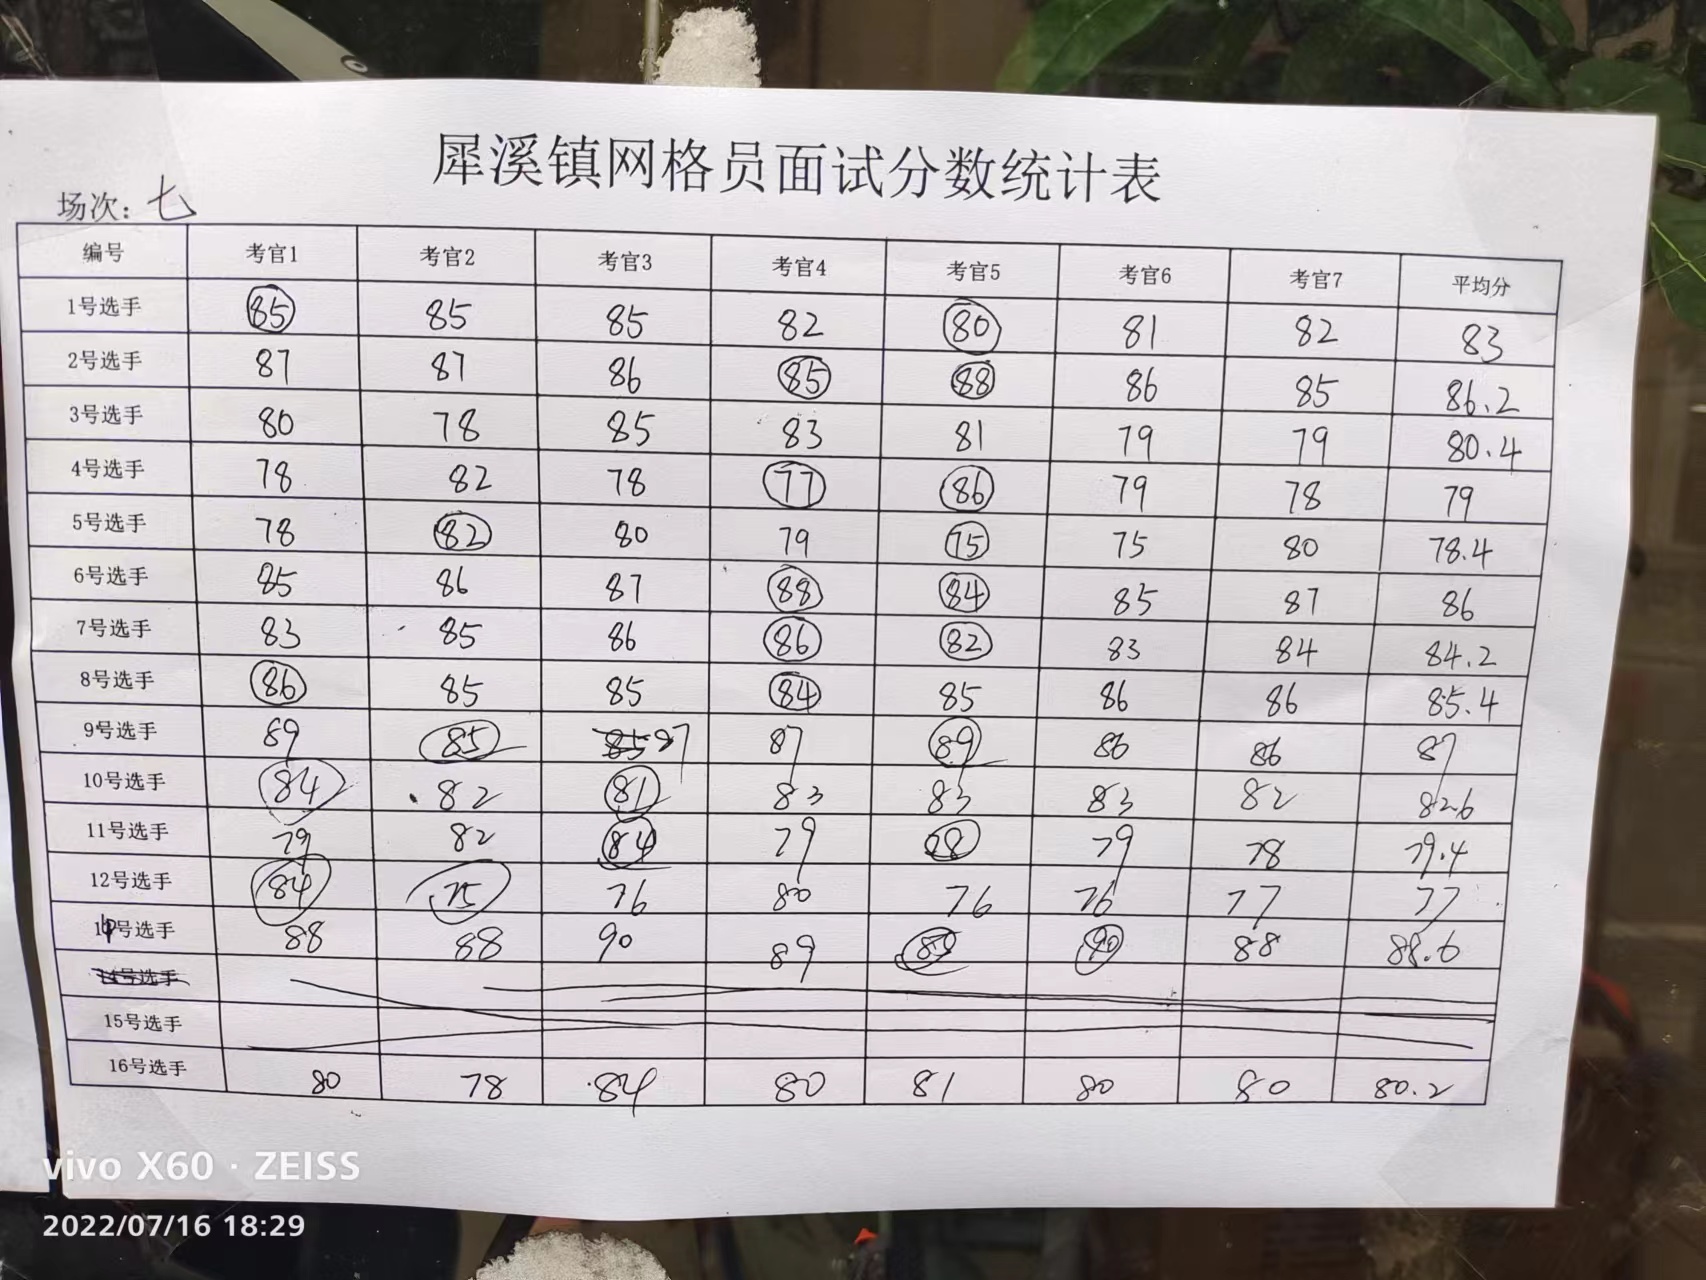 犀溪镇网格员面试分数统计表
场次：七
编号 考官1 考官2 考官3 考官4 考官5 考官6 考官7 平均分
1号选手 85 85 85 82 80 81 82 83
2号选手 87 87 86 85 88 86 85 86.2
3号选手 80 78 85 83 81 79 79 80.4
4号选手 78 82 78 77 86 79 78 79
5号选手 78 82 80 79 75 75 80 78.4
6号选手 85 86 87 88 84 85 87 86
7号选手 83 85 86 86 82 83 84 84.2
8号选手 86 85 85 84 85 86 86 85.4
9号选手 89 85 87 87 89 86 86 87
10号选手 84 82 81 83 83 83 82 82.6
11号选手 79 82 84 79 78 79 78 79.4
12号选手 84 75 76 80 76 76 77 77
号选手 88 88 90 89 90 88 88.6
14号选手
15号选手
16号选手 80 78 84 80 81 80 80 80.2
vivo X60 · ZEISS
2022/07/16 18:29